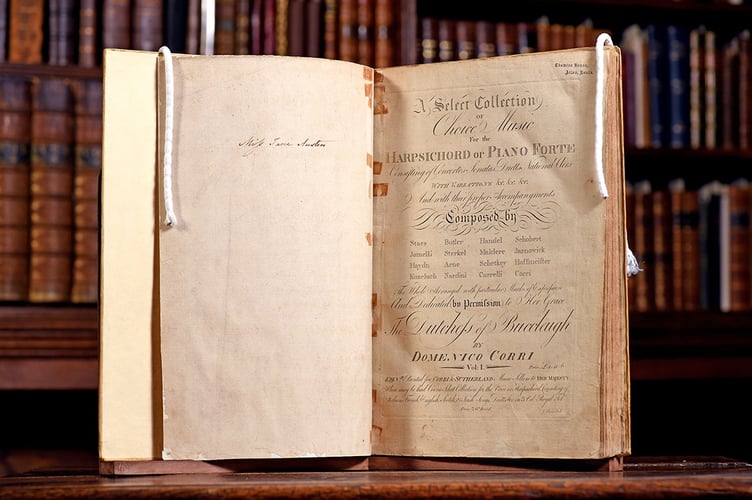 Miſs Jane Austen
Chawton House,
Alton, Hants.
A Select Collection
OF
Choice Music
For the
HARPSICHORD or PIANO FORTE
Consisting of Concertos Sonatas Duetts National Airs
WITH VARIATIONS &c. &c. &c.
And with their proper Accompanyments
Composed by
Staes Butler Handel Schobert
Jomelli Sterkel Maldere Jarnowick
Haydn Arne Schetkey Hoffmeister
Kozeluch Nardini Correlli Corri
The Whole Arranged with particular Marks of Expression
And Dedicated by Permiſsion to Her Grace
The Dutcheſs of Buccleugh
BY
DOMENICO CORRI
Vol: I. Price
EDINr. Printed for CORRI & SUTHERLAND Music Sellers to HER MAJESTY